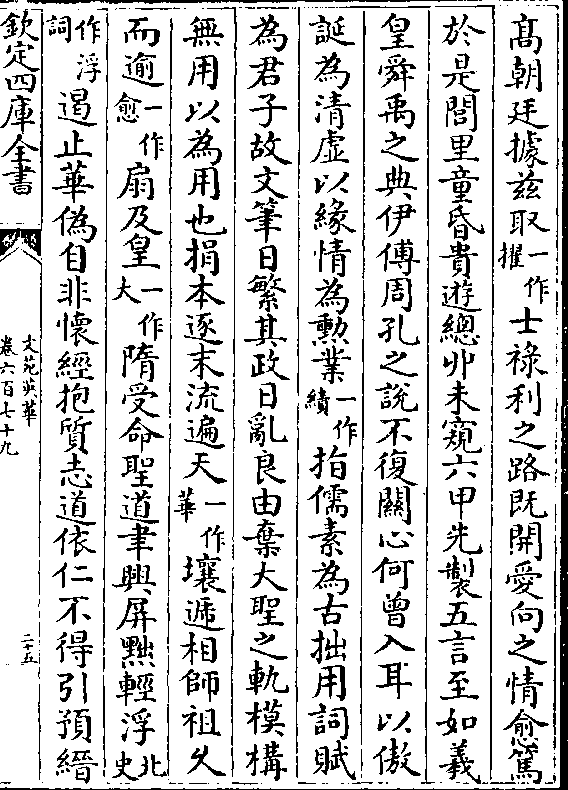 髙朝廷據兹取一作擢士禄利之路既開愛向之情愈篤
於是閭里童昏貴遊總丱未窺六甲先製五言至如羲
皇舜禹之典伊傅周孔之說不復關心何曾入耳以傲
誕為清虚以緣情為勲業一作績指儒素為古拙用詞賦
為君子故文筆日繁其政日亂良由棄大聖之軌模構
無用以為用也捐本逐末流遍天一作華壤遞相師祖乆
而逾一作愈扇及皇一作大隋受命聖道聿興屏黜輕浮北史
作浮詞遏止華偽自非懷經抱質志道依仁不得引預縉
欽定四庫全書
文苑英華
卷六百七十九
二十五